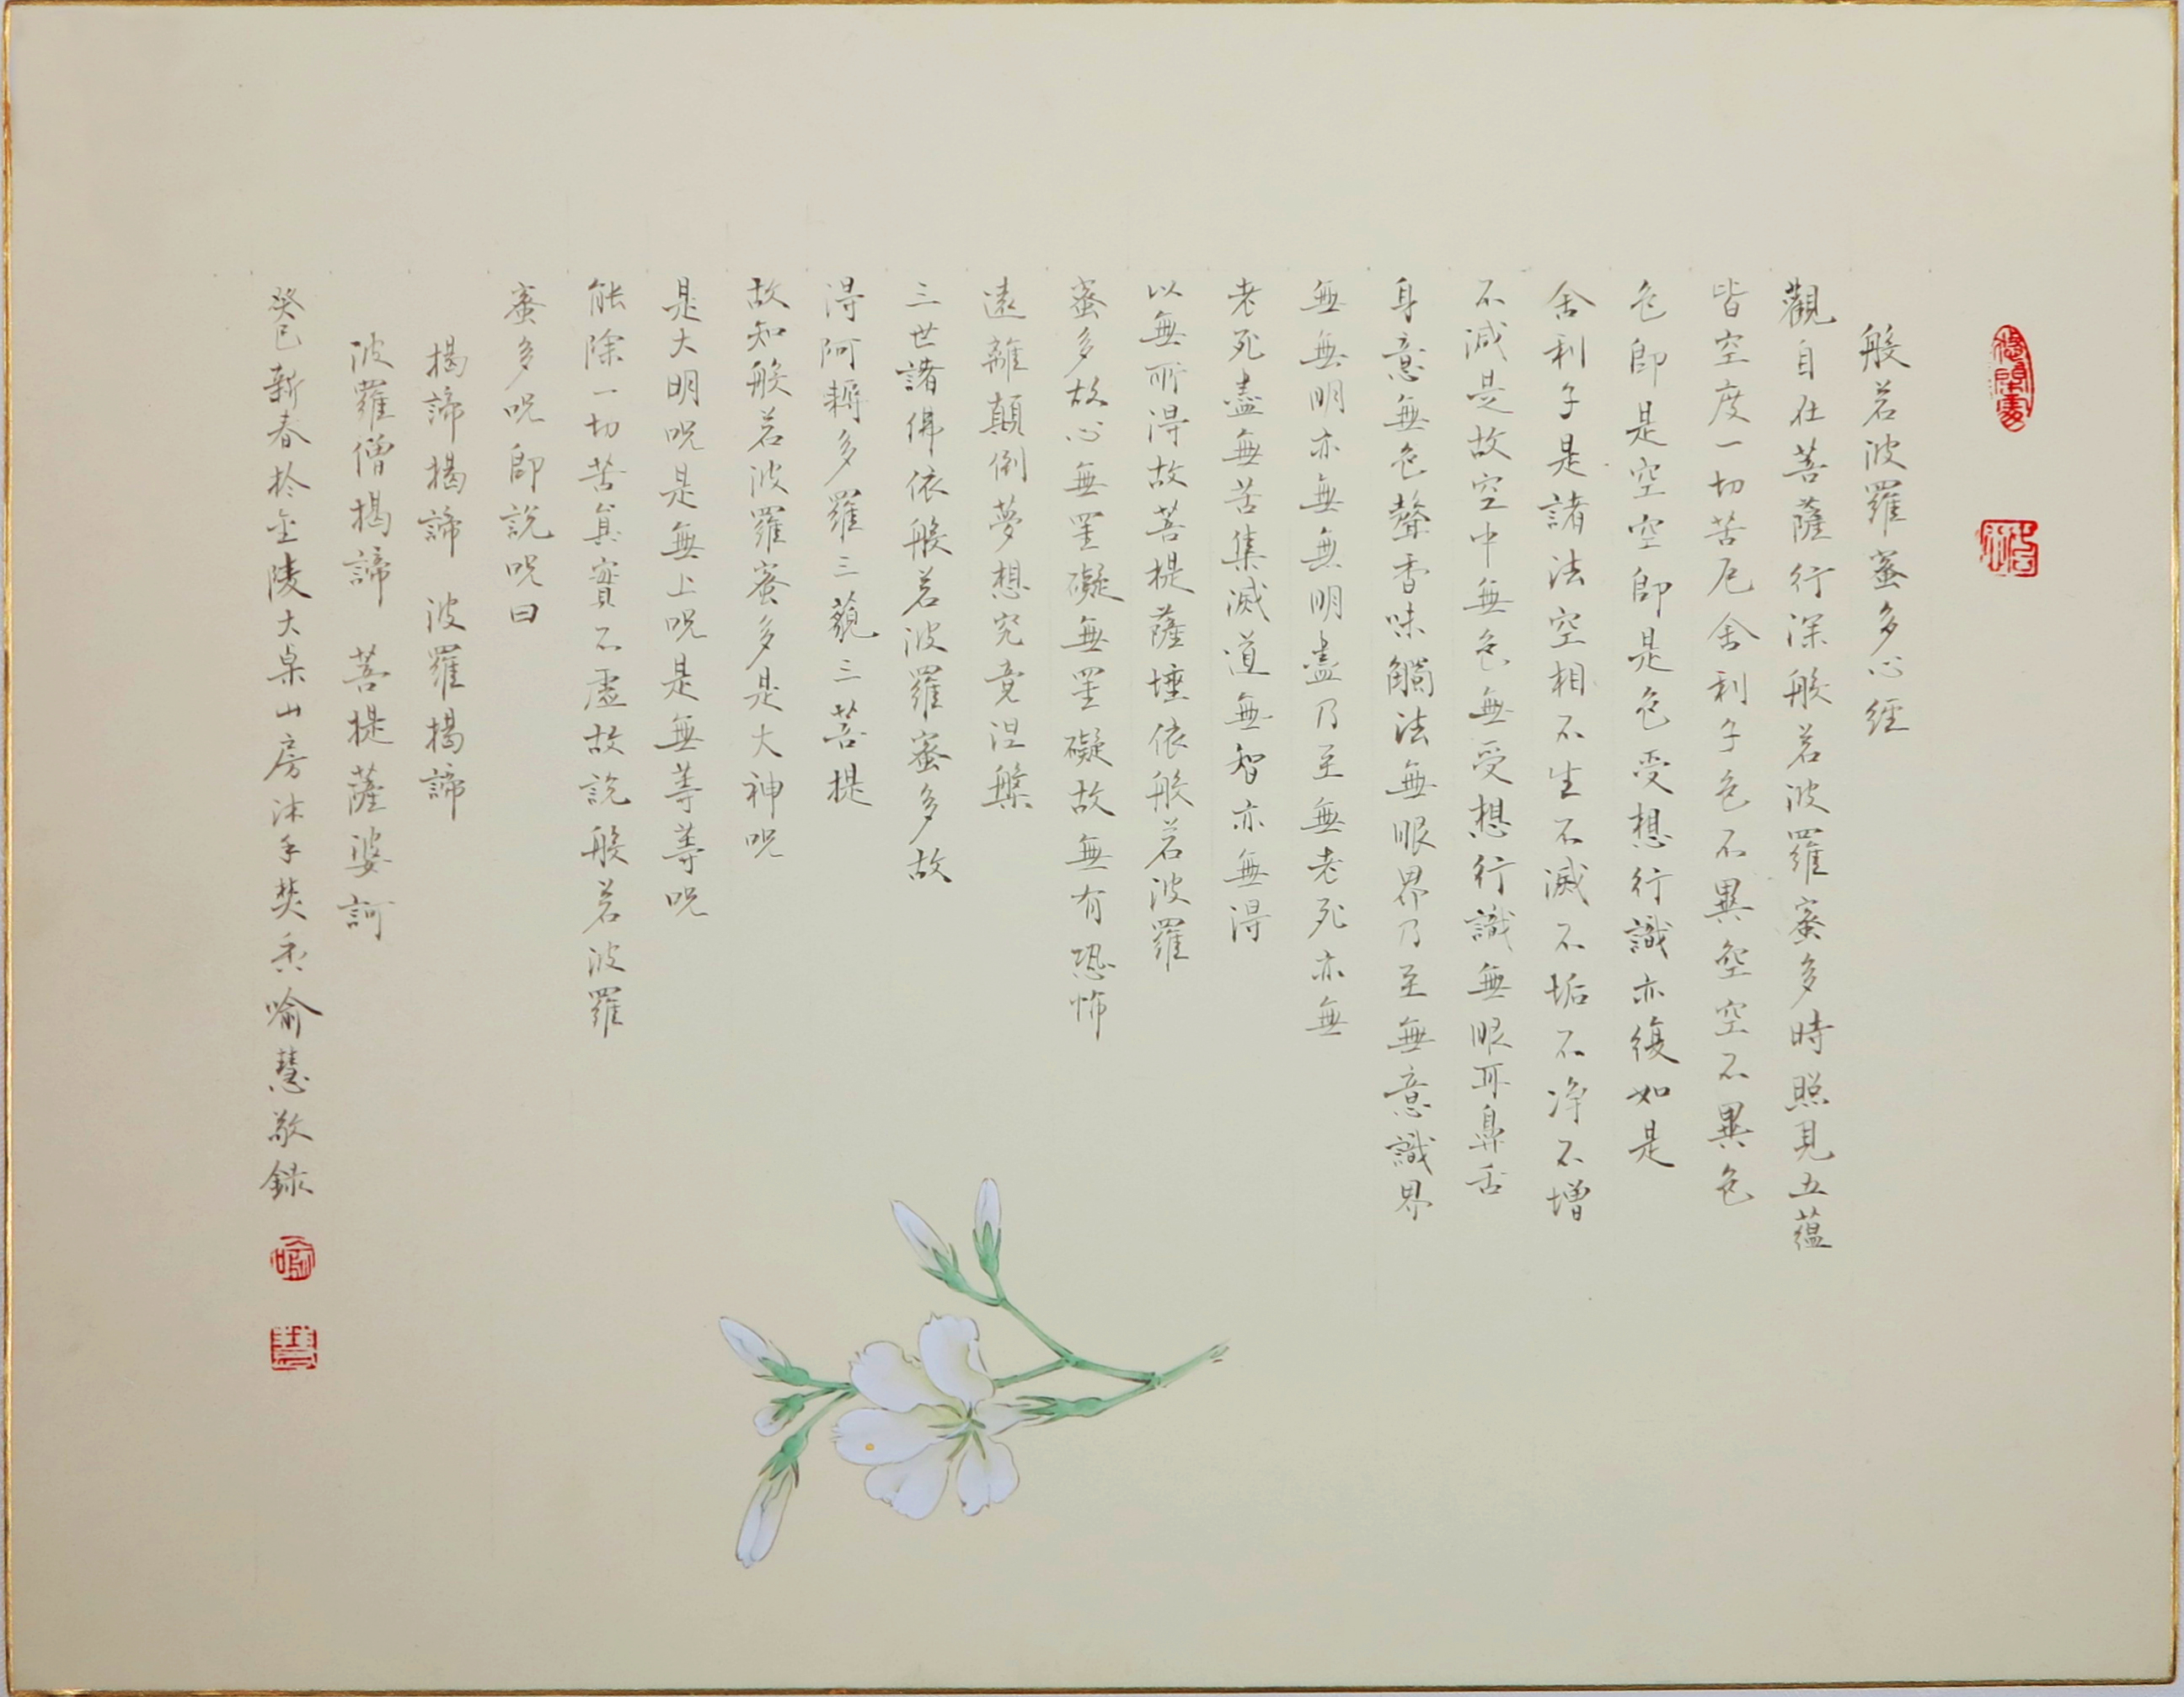 般若波羅蜜多心經
觀自在菩薩行深般若波羅蜜多時照見五蘊
皆空度一切苦厄舍利子色不異空空不異色
色即是空空即是色受想行識亦復如是
舍利子是諸法空相不生不滅不垢不净不增
不減是故空中無色無受想行識無眼耳鼻舌
身意無色聲香味觸法無眼界乃至無意識界
無無明亦無無明盡乃至無老死亦無
老死盡無苦集滅道無智亦無得
以無所得故菩提薩埵依般若波羅
蜜多故心無罣礙無罣礙故無有恐怖
遠離顛倒夢想究竟涅槃
三世諸佛依般若波羅蜜多故
得阿耨多羅三藐三菩提
故知般若波羅蜜多是大神呪
是大明呪是無上呪是無等等呪
能除一切苦真實不虛故說般若波羅
蜜多呪即說呪曰
揭諦揭諦 波羅揭諦
波羅僧揭諦 菩提薩婆訶
癸巳新春於金陵大桌山房沐手焚香喻慧敬錄
喻
慧